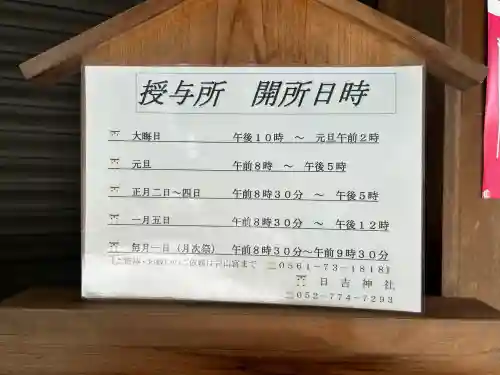 授与所 開所日時
大晦日 午後10時 ~ 元旦午前2時
元旦 午前8時 ~ 午後5時
正月二日~四日 午前8時30分 ~ 午後5時
一月五日 午前8時30分 ~ 午後12時
毎月一日(月次祭) 午前8時30分~午前9時30分
山宮まで ☎0561-73-1818】
日吉神社
☎052-774-7293